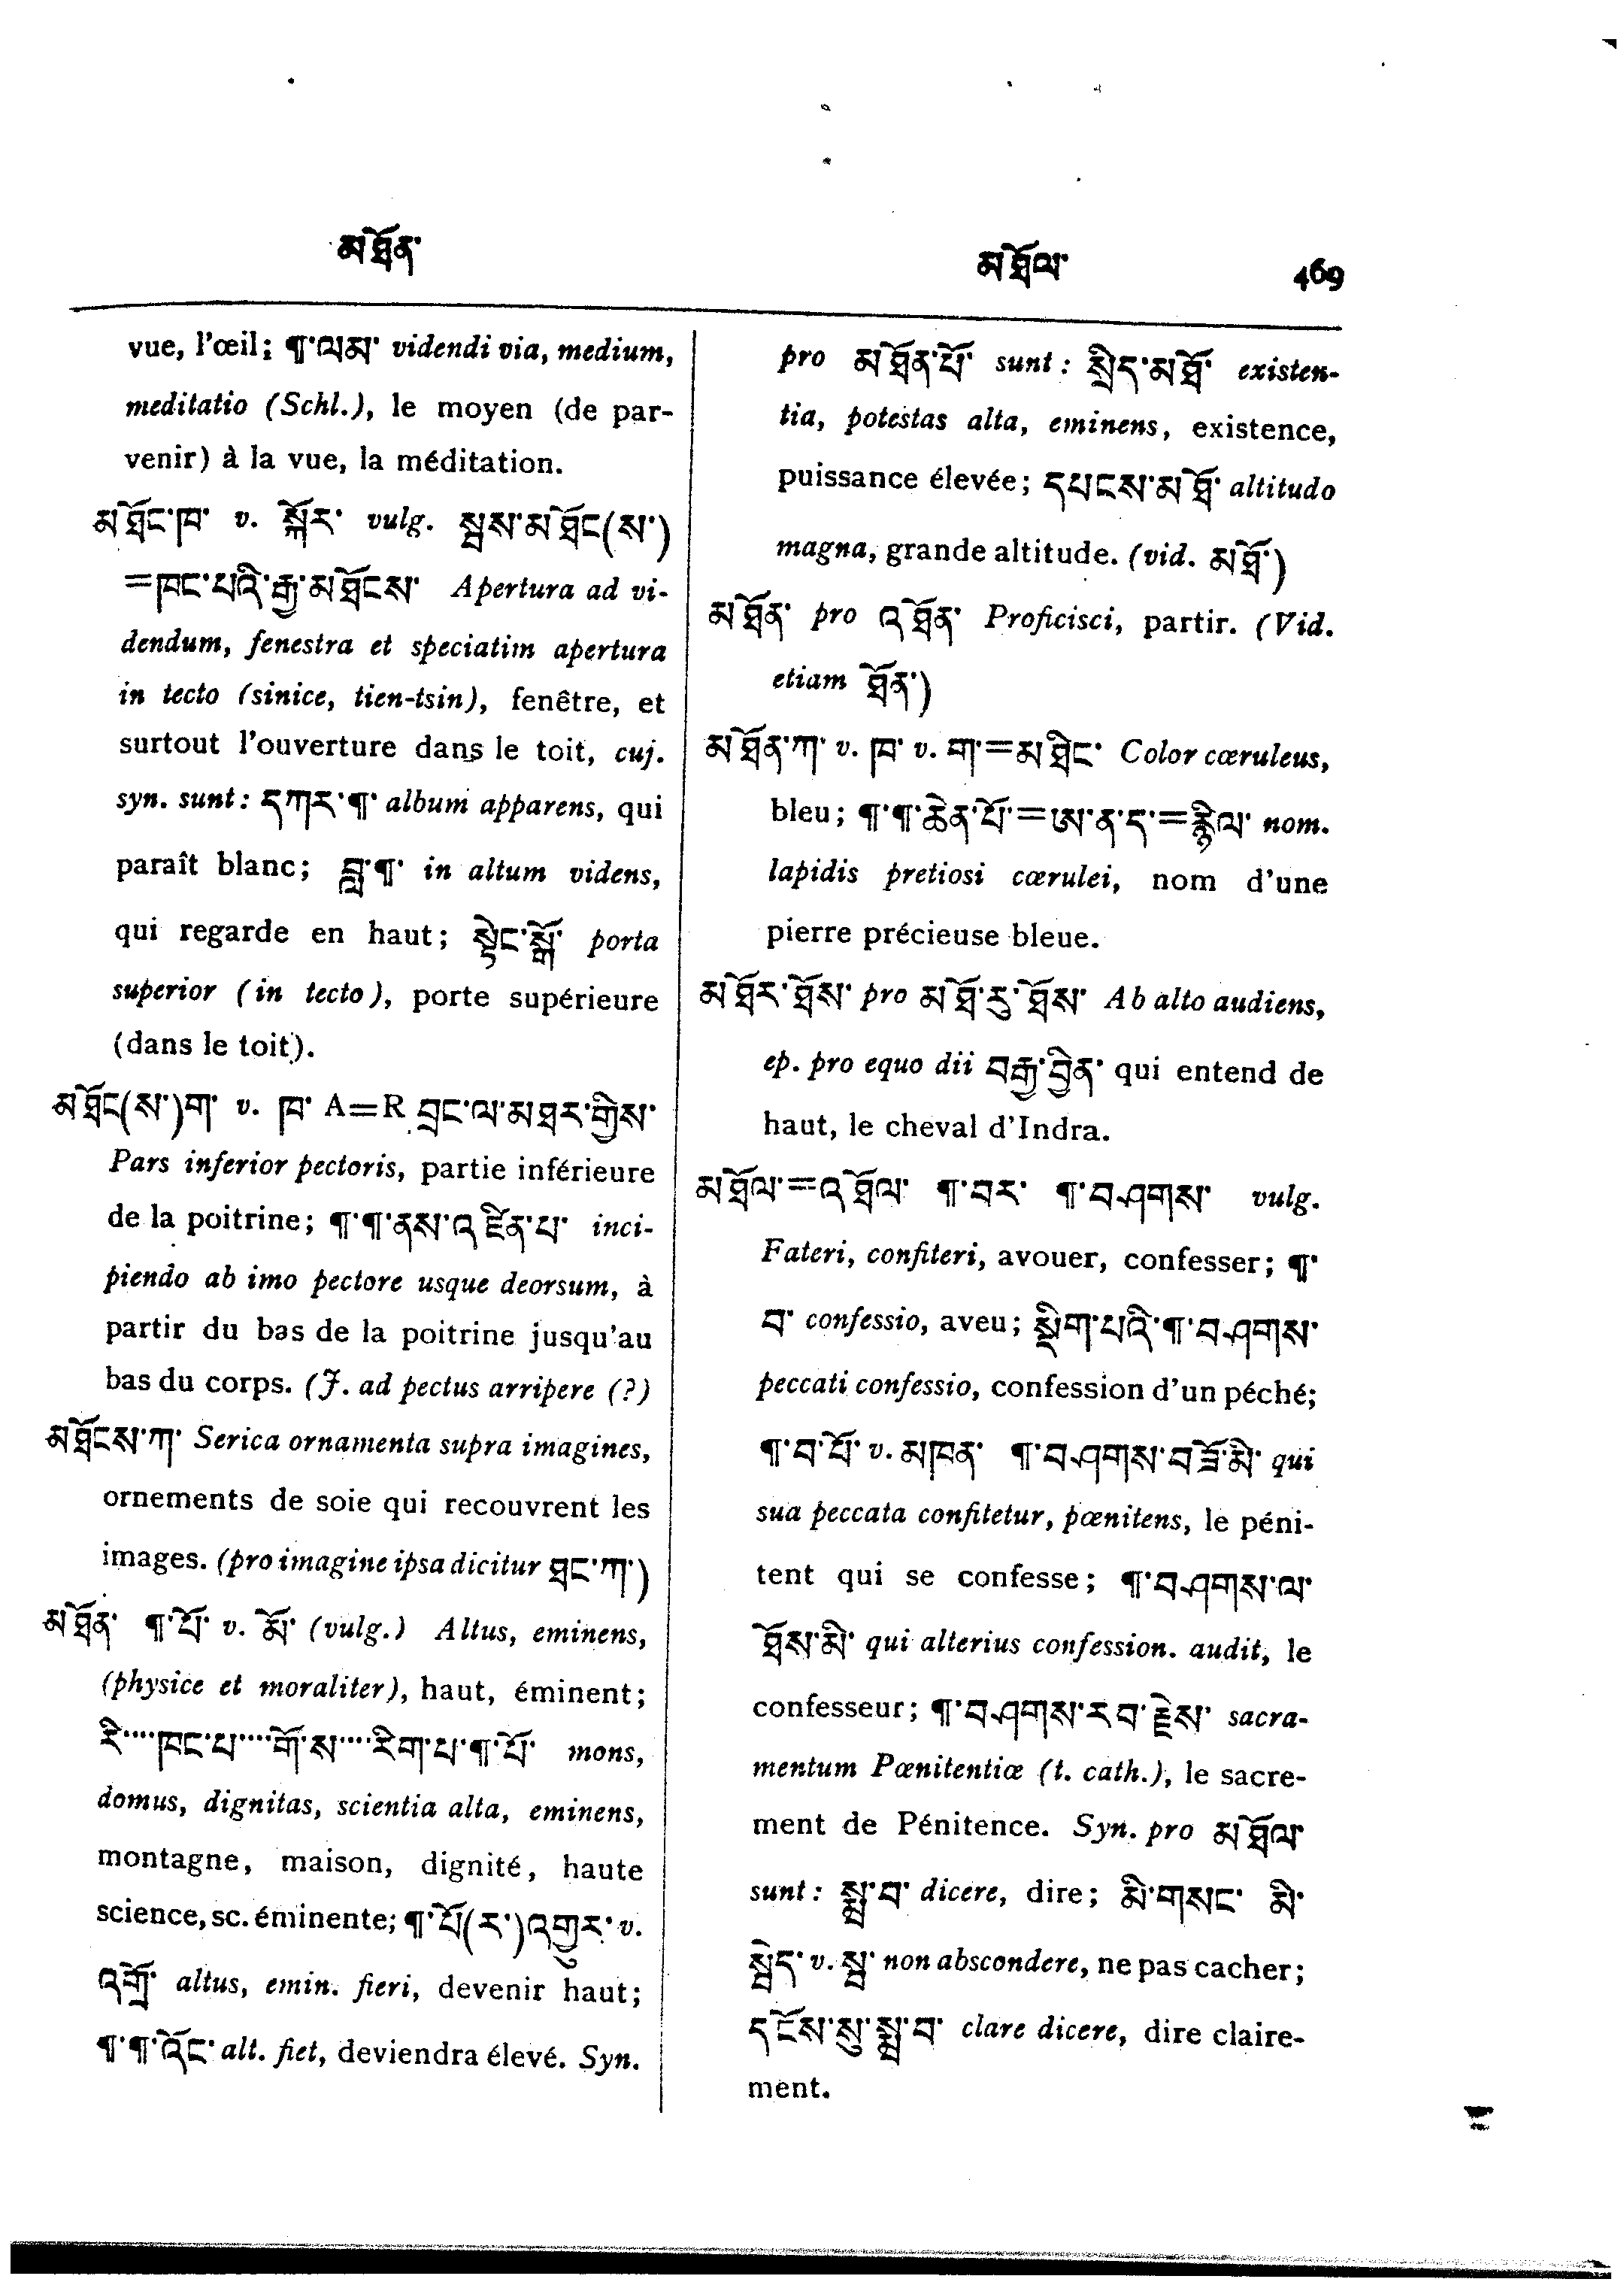 མཐོན་
མཐོལ་ 469
vue, l'œil; ¶་ལམ་ videndi via, medium,
meditatio (Schl.), le moyen (de par-
venir) à la vue, la méditation.
མཐོང་ཁ་ v. སྐོར་ vulg. སྦས་མཐོང(ས་)
=ཁང་པའི་རྒྱ་མཐོངས་ Apertura ad vi-
dendum, fenestra et speciatim apertura
in tecto (sinice, tien-tsin), fenêtre, et
surtout l'ouverture dans le toit, cuj.
syn. sunt: དཀར་¶་ album apparens, qui
paraît blanc; བླ་¶་ in altum videns,
qui regarde en haut; སྟེང་སྒོ་ porta
superior (in tecto), porte supérieure
(dans le toit).
མཐོང(ས་)ག་ v. ཁ་ A=R བྲང་ལ་མཐར་གྱིས་
Pars inferior pectoris, partie inférieure
de la poitrine; ¶་¶་ནས་འཛིན་པ་ inci-
piendo ab imo pectore usque deorsum, à
partir du bas de la poitrine jusqu'au
bas du corps. (J. ad pectus arripere (?)
མཐོངས་ཀ་ Serica ornamenta supra imagines,
ornements de soie qui recouvrent les
images. (pro imagine ipsa dicitur ཐང་ཀ་)
མཐོན་ ¶་པོ་ v. མོ་ (vulg.) Altus, eminens,
(physice et moraliter), haut, éminent;
རི་····ཁང་པ་····གོ་ས་····རིག་པ་¶་པོ་ mons,
domus, dignitas, scientia alta, eminens,
montagne, maison, dignité, haute
science, sc. éminente; ¶་པོ(ར་)འགྱུར་ v.
འགྲོ་ altus, emin. fieri, devenir haut;
¶་¶་འོང་ alt. fiet, deviendra élevé. Syn.
pro མཐོན་པོ་ sunt: སྲིད་མཐོ་ existen-
tia, potestas alta, eminens, existence,
puissance élevée; དཔངས་མཐོ་ altitudo
magna, grande altitude. (vid. མཐོ་)
མཐོན་ pro འཐོན་ Proficisci, partir. (Vid.
etiam ཐོན་)
མཐོན་ཀ་ v. ཁ་ v. ག་=མཐིང་ Color cœruleus,
bleu; ¶་¶་ཆེན་པོ་=ཨ་ན་ད་= nom.
lapidis pretiosi cœrulei, nom d'une
pierre précieuse bleue.
མཐོར་ཐོས་ pro མཐོ་རུ་ཐོས་ Ab alto audiens,
ep. pro equo dii བརྒྱ་བྱིན་ qui entend de
haut, le cheval d'Indra.
མཐོལ་=འཐོལ་ ¶་བར་ ¶་བཤགས་ vulg.
Fateri, confiteri, avouer, confesser; ¶་
བ་ confessio, aveu; སྡིག་པའི་¶་བཤགས་
peccati confessio, confession d'un péché;
¶་བ་པོ་ v. མཁན་ ¶་བཤགས་བཟོ་མི་ qui
sua peccata confitetur, pœnitens, le péni-
tent qui se confesse; ¶་བཤགས་ལ་
ཐོས་མི་ qui alterius confession. audit, le
confesseur; ¶་བཤགས་རབ་རྗེས་ sacra-
mentum Pœnitentiæ (t. cath.), le sacre-
ment de Pénitence. Syn. pro མཐོལ་
sunt: སྨྲ་བ་ dicere, dire; མི་གསང་ མི་
སྦེད་ v. སྦ་ non abscondere, ne pas cacher;
དངོས་སུ་སྨྲ་བ་ clare dicere, dire claire-
ment.